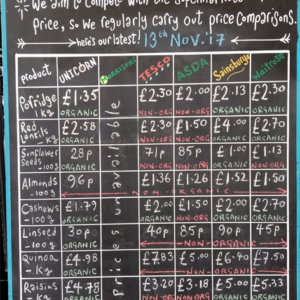 We aim to compete with the supermarkets
Price, so we regularly carry out price comparisons.
here's our latest! 13th Nov. '17
PRODUCT UNICORN MORRISONS TESCO ASDA Sainsburys Waitrose
Porridge 1 KG £1.35 ORGANIC £2.30 NON-ORG £2.00 NON-ORG £2.13 ORGANIC £2.30 ORGANIC
Red Lentils KG £2.58 ORGANIC £2.30 NON-ORG £1.50 NON-ORG £4.00 ORGANIC £2.70 NON-ORG
Sunflower Seeds -100g 28p ORGANIC 71p NON-ORG 85p NON-ORG £1.00 ORGANIC £1.13 NON-ORG
Almonds -100g 96p £1.36 £1.26 £1.52 £1.50
NON ORGANIC
Cashews -100g £1.79 ORGANIC £2.00 ORGANIC £1.50 NON-ORG £2.00 ORGANIC £2.70 ORGANIC
Linseed -100g 30p ORGANIC 40p 85p 90p 45p
NON-ORGANIC
Quinoa - KG £4.98 ORGANIC £7.83 £5.00 £6.40 £7.50
NON-ORGANIC
Raisins - KG £4.78 ORGANIC £3.20 NON-ORG £3.18 NON-ORG £5.00 £5.33
prices unavailable